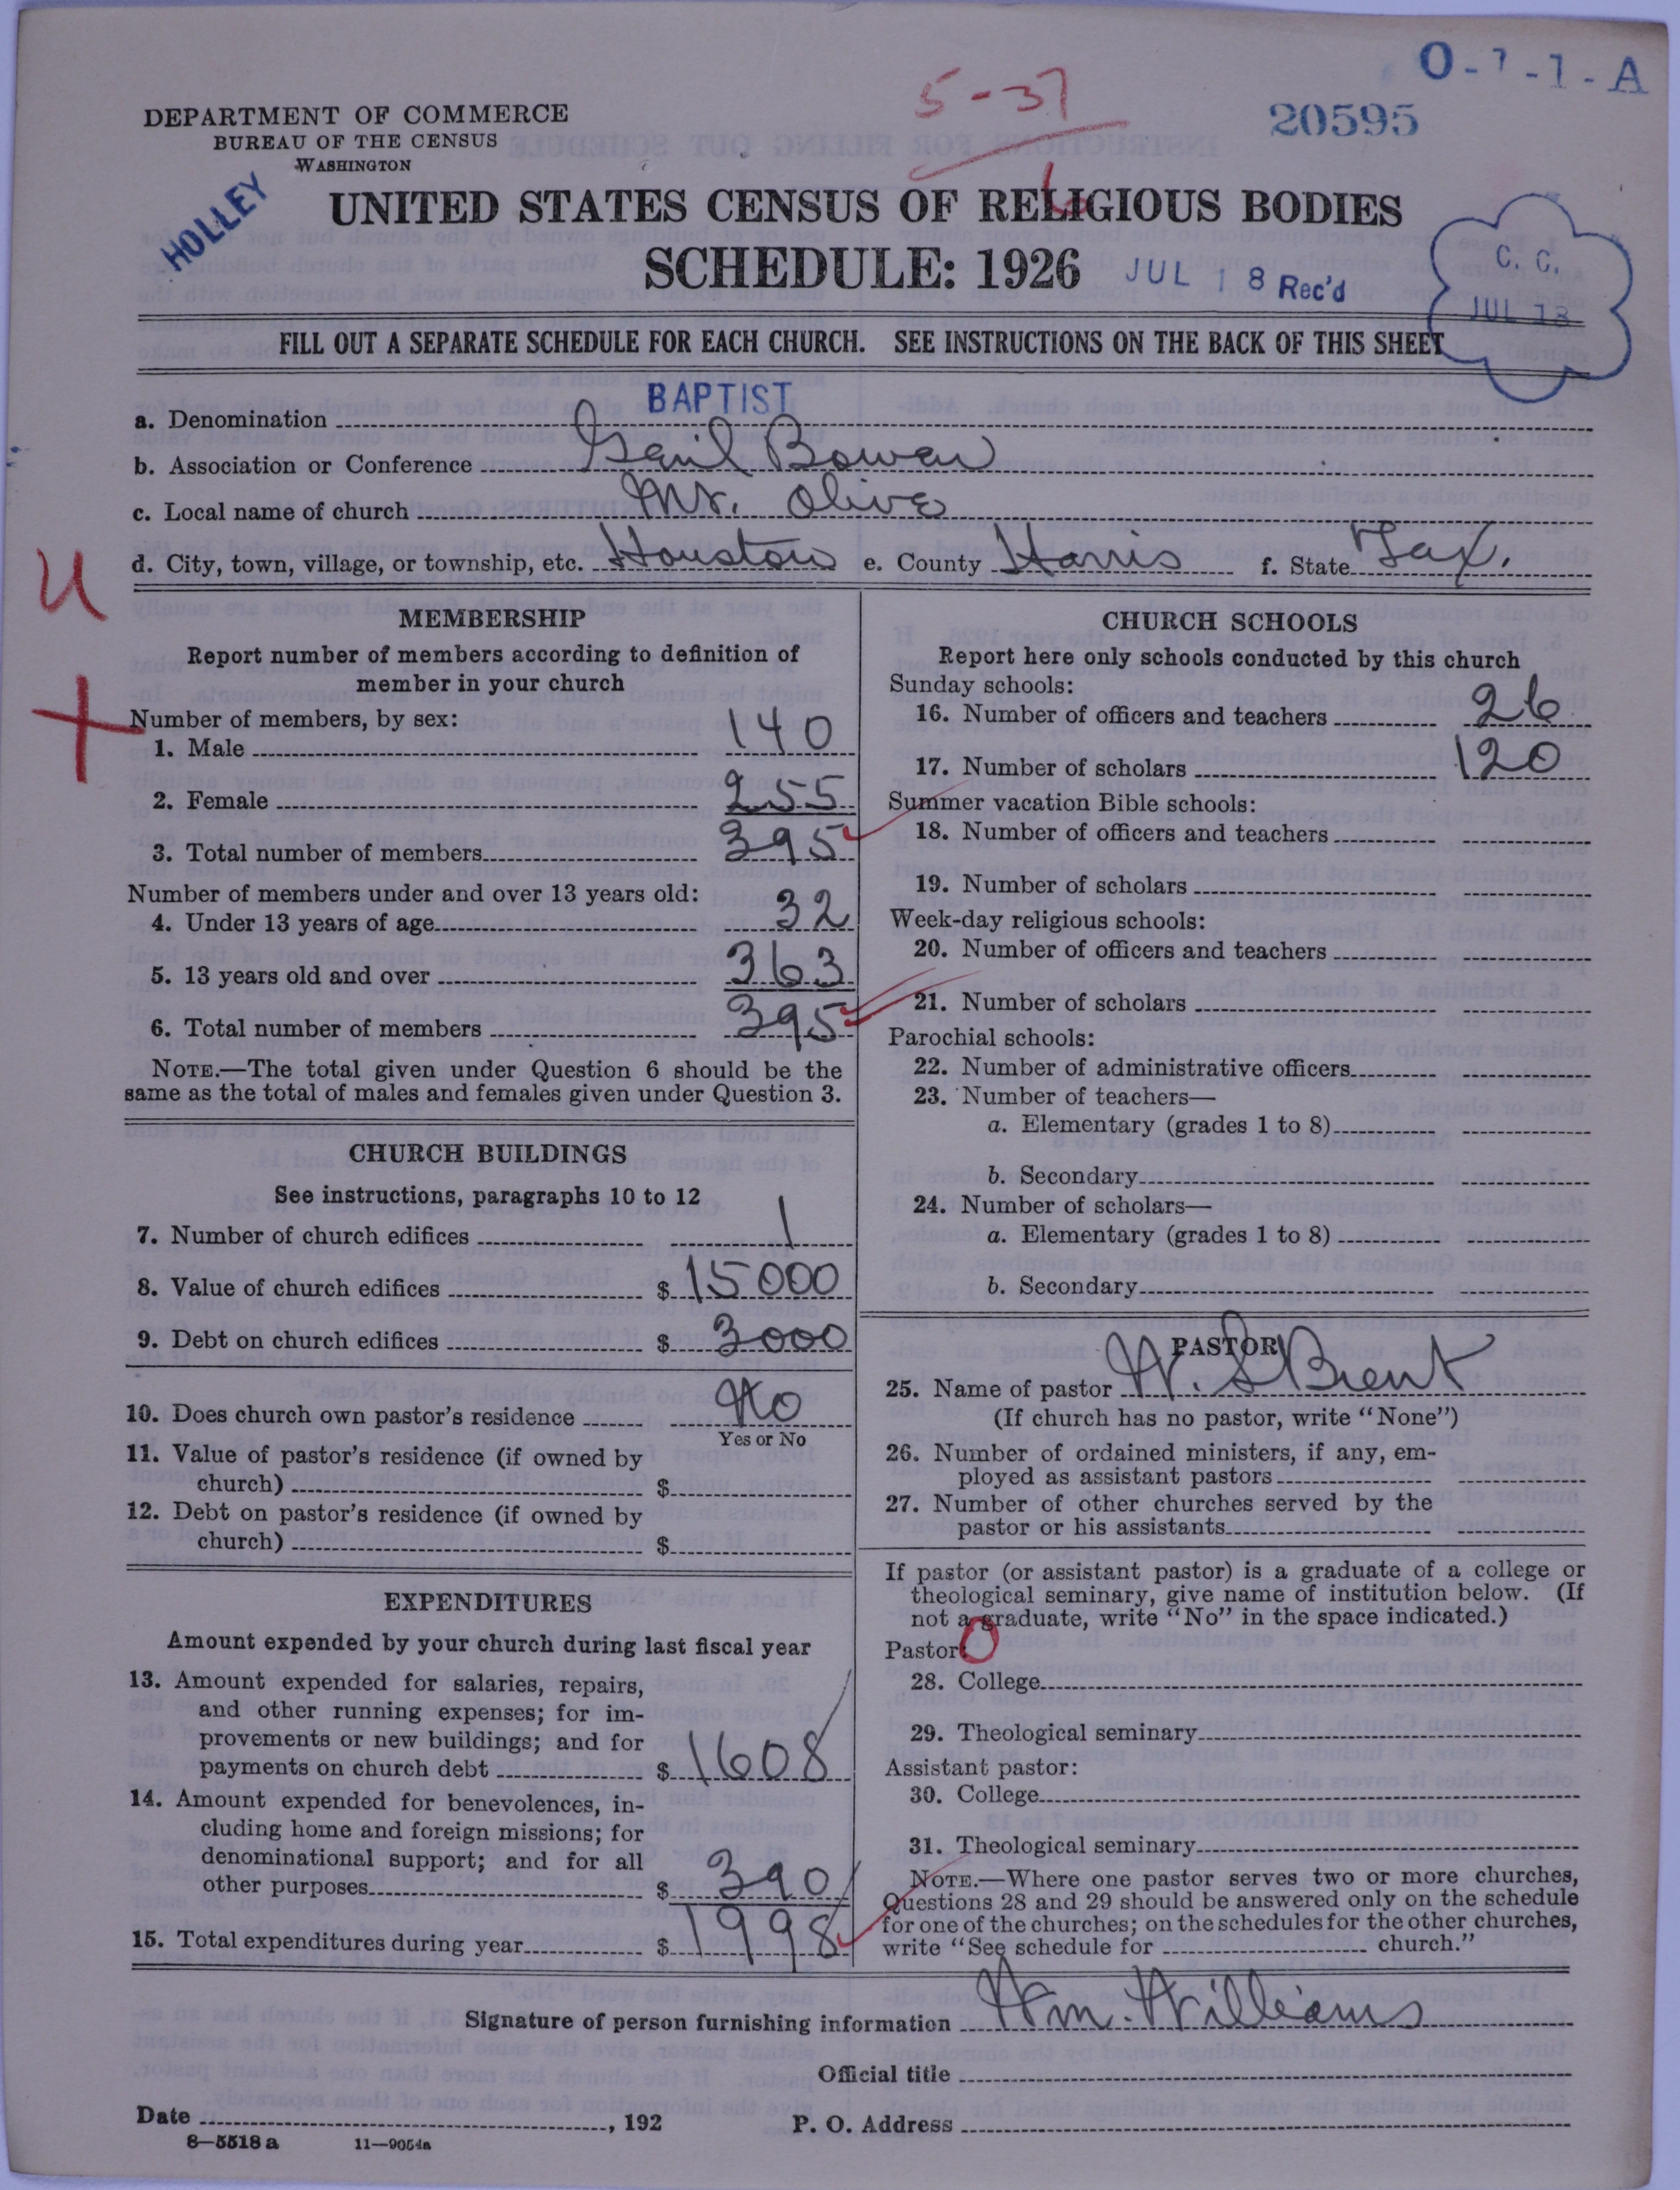 5-37
O-7-1-A
20595
DEPARTMENT OF COMMERCE
BUREAU OF THE CENSUS
WASHINGTON
HOLLEY
6
UNITED STATES CENSUS OF RELIGIOUS BODIES
SCHEDULE: 1926
JUL 18 Rec'd
C. C.
JUL 18
FILL OUT A SEPARATE SCHEDULE FOR EACH CHURCH. SEE INSTRUCTIONS ON THE BACK OF THIS SHEET
a. Denomination BAPTIST
b. Association or Conference Gail Bowen
c. Local name of church Mt. Olive
d. City, town, village, or township, etc. Houston e. County Harris f. State Tex.
U
MEMBERSHIP
Report number of members according to definition of
member in your church
Number of members, by sex:
1. Male 140
2. Female 255
3. Total number of members 395
Number of members under and over 13 years old:
4. Under 13 years of age 32
5. 13 years old and over 363
6. Total number of members 395
NOTE.—The total given under Question 6 should be the
same as the total of males and females given under Question 3.
CHURCH BUILDINGS
See instructions, paragraphs 10 to 12
7. Number of church edifices 1
8. Value of church edifices $ 15000
9. Debt on church edifices $ 3000
10. Does church own pastor's residence No
Yes or No
11. Value of pastor's residence (if owned by
church) $
12. Debt on pastor's residence (if owned by
church) $
EXPENDITURES
Amount expended by your church during last fiscal year
13. Amount expended for salaries, repairs,
and other running expenses; for im-
provements or new buildings; and for
payments on church debt $ 1608
14. Amount expended for benevolences, in-
cluding home and foreign missions; for
denominational support; and for all
other purposes $ 390
15. Total expenditures during year $ 1998
CHURCH SCHOOLS
Report here only schools conducted by this church
Sunday schools:
16. Number of officers and teachers 26
17. Number of scholars 120
Summer vacation Bible schools:
18. Number of officers and teachers
19. Number of scholars
Week-day religious schools:
20. Number of officers and teachers
21. Number of scholars
Parochial schools:
22. Number of administrative officers
23. Number of teachers—
a. Elementary (grades 1 to 8)
b. Secondary
24. Number of scholars—
a. Elementary (grades 1 to 8)
b. Secondary
PASTOR
25. Name of pastor W. S Brent
(If church has no pastor, write "None")
26. Number of ordained ministers, if any, em-
ployed as assistant pastors
27. Number of other churches served by the
pastor or his assistants
If pastor (or assistant pastor) is a graduate of a college or
theological seminary, give name of institution below. (If
not a graduate, write "No" in the space indicated.)
Pastor: O
28. College
29. Theological seminary
Assistant pastor:
30. College
31. Theological seminary
NOTE.—Where one pastor serves two or more churches,
Questions 28 and 29 should be answered only on the schedule
for one of the churches; on the schedules for the other churches,
write "See schedule for church."
Signature of person furnishing information Wm. Williams
Official title
Date , 192 P. O. Address
8—5518 a 11—9054a